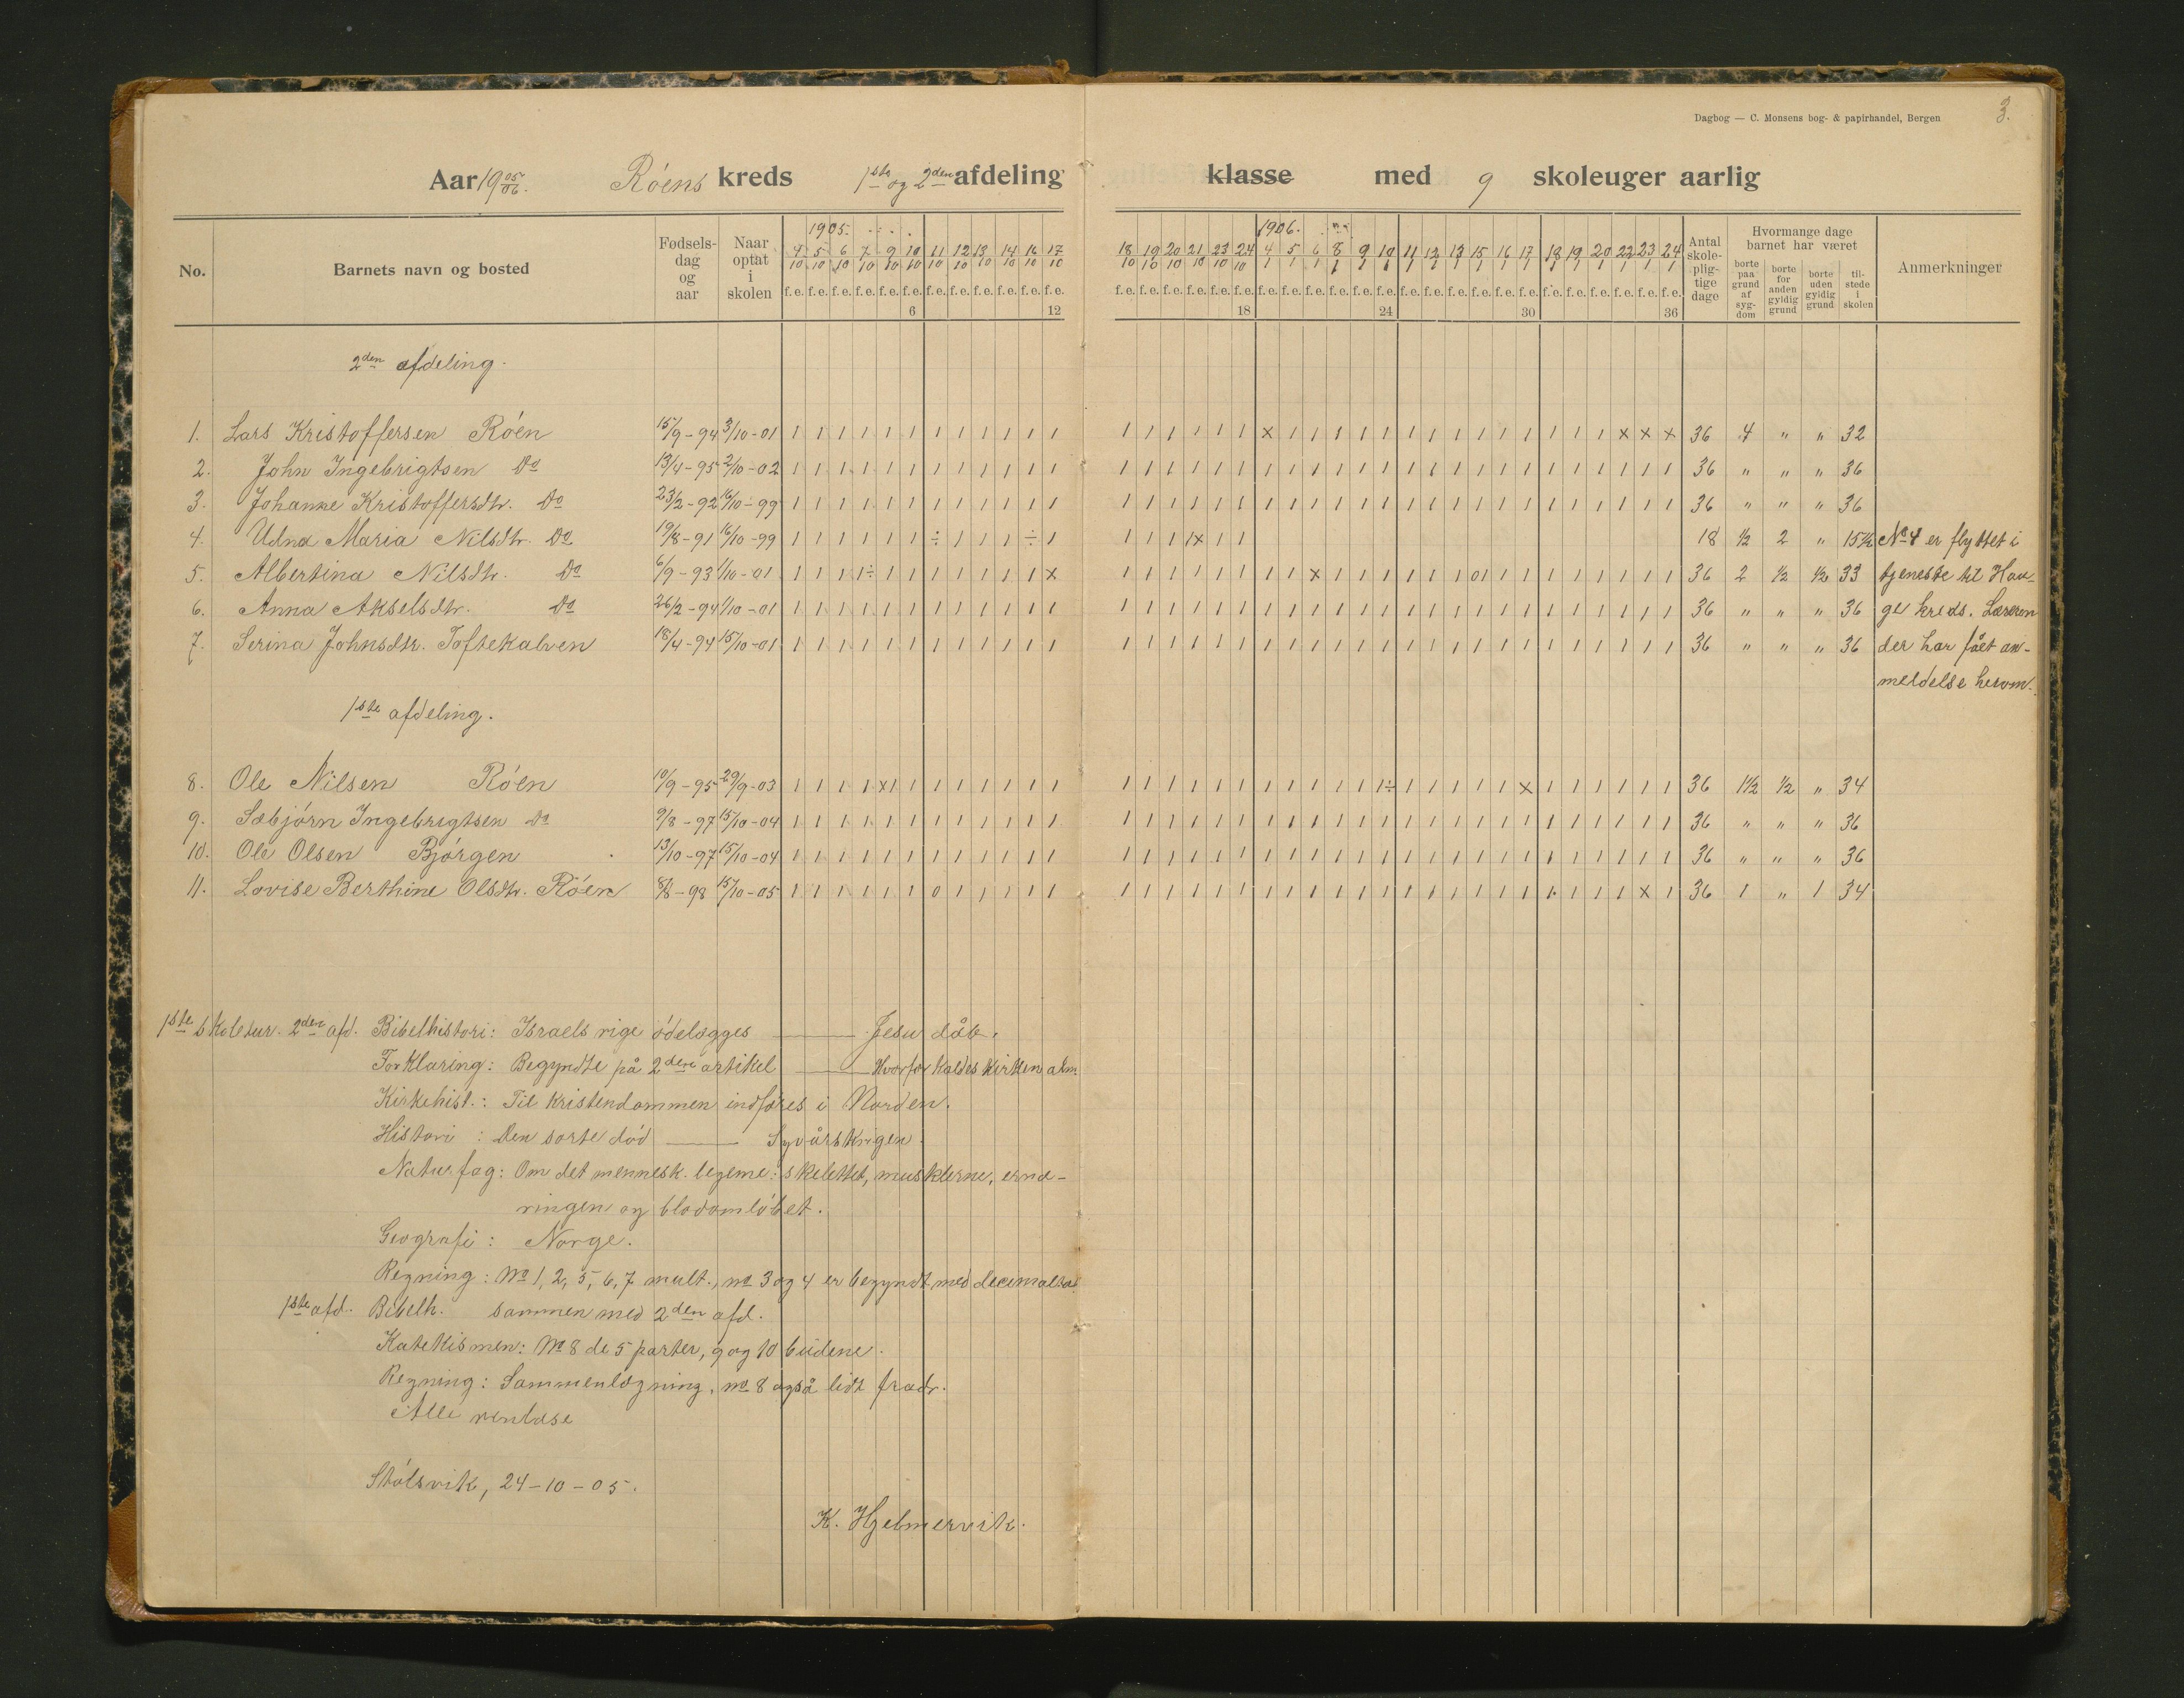 Dagbog — C. Monsens bog- & papirhandel, Bergen
3.
Aar 19 05/06. Róens kreds 1ste og 2den afdeling klasse med 9 skoleuger aarlig
No. Barnets navn og bosted Fødselsdag og aar Naar optat i skolen 1905. 1906. Antal skolepligtige dage Hvormange dage barnet har været Anmerkninger
borte paa grund af sygdom borte for anden gyldig grund borte uden gyldig grund tilstede i skolen
4/10 5/10 6/10 7/10 9/10 10/10 11/10 12/10 13/10 14/10 16/10 17/10 18/10 19/10 20/10 21/10 23/10 24/10 4/1 5/1 6/1 8/1 9/1 10/1 11/1 12/1 13/1 15/1 16/1 17/1 18/1 19/1 20/1 22/1 23/1 24/1
f.e. f.e. f.e. f.e. f.e. f.e. f.e. f.e. f.e. f.e. f.e. f.e. f.e. f.e. f.e. f.e. f.e. f.e. f.e. f.e. f.e. f.e. f.e. f.e. f.e. f.e. f.e. f.e. f.e. f.e. f.e. f.e. f.e. f.e. f.e. f.e.
6 12 18 24 30 36
2den afdeling.
1. Lars Kristoffersen Róen 15/9-94 3/10-01 1 1 1 1 1 1 1 1 1 1 1 1 1 1 1 1 1 1 x 1 1 1 1 1 1 1 1 1 1 1 1 1 1 x x x 36 4 " " 32
2. John Ingebrigtsen Do 13/4-95 2/10-02 1 1 1 1 1 1 1 1 1 1 1 1 1 1 1 1 1 1 1 1 1 1 1 1 1 1 1 1 1 1 1 1 1 1 1 1 36 " " " 36
3. Johanne Kristoffersdtr. Do 23/2-92 16/10-99 1 1 1 1 1 1 1 1 1 1 1 1 1 1 1 1 1 1 1 1 1 1 1 1 1 1 1 1 1 1 1 1 1 1 1 1 36 " " " 36
4. Udna Maria Nilsdtr. Do 19/8-91 16/10-99 1 1 1 1 1 1 ÷ 1 1 1 ÷ 1 1 1 1 1x 1 1 18 ½ 2 " 15½ No 4 er flyttet i
5. Albertina Nilsdtr. Do 6/9-93 1/10-01 1 1 1 1÷ 1 1 1 1 1 1 1 x 1 1 1 1 1 1 1 1 x 1 1 1 1 1 1 01 1 1 1 1 1 1 1 1 36 2 ½ ½ 33 tjeneste til Hau-
6. Anna Akselsdtr. Do 26/2-94 1/10-01 1 1 1 1 1 1 1 1 1 1 1 1 1 1 1 1 1 1 1 1 1 1 1 1 1 1 1 1 1 1 1 1 1 1 1 1 36 " " " 36 ge kreds. Læreren
7. Serina Johnsdtr. Toftekalven 18/4-94 15/10-01 1 1 1 1 1 1 1 1 1 1 1 1 1 1 1 1 1 1 1 1 1 1 1 1 1 1 1 1 1 1 1 1 1 1 1 1 36 " " " 36 der har fået an-
meldelse herom.
1ste afdeling.
8. Ole Nilsen Róen 10/9-95 29/9-03 1 1 1 1 x1 1 1 1 1 1 1 1 1 1 1 1 1 1 1 1 1 1 1 1÷ 1 1 1 1 1 x 1 1 1 1 1 1 36 1½ ½ " 34
9. Sæbjórn Ingebrigtsen Do 9/8-97 15/10-04 1 1 1 1 1 1 1 1 1 1 1 1 1 1 1 1 1 1 1 1 1 1 1 1 1 1 1 1 1 1 1 1 1 1 1 1 36 " " " 36
10. Ole Olsen Bjórgen 13/10-97 15/10-04 1 1 1 1 1 1 1 1 1 1 1 1 1 1 1 1 1 1 1 1 1 1 1 1 1 1 1 1 1 1 1 1 1 1 1 1 36 " " " 36
11. Lovise Berthine Olsdtr. Róen 8/8-98 15/10-05 1 1 1 1 1 1 0 1 1 1 1 1 1 1 1 1 1 1 1 1 1 1 1 1 1 1 1 1 1 1 1 1 1 1 x 1 36 1 " 1 34
1ste skoletur. 2den afd. Bibelhistori: Israels rige ódelægges —— Jesu dåb.
Forklaring: Begyndte på 2den artikel —— Hvorfor kaldes kirken alm.
Kirkehist.: Til kristendommen indføres i Norden.
Histori: Den sorte dód —— Syvårskrigen.
Naturfag: Om det mennesk. legeme: skelettet, musklerne, ernæ-
ringen og blodomlóbet.
Geografi: Norge.
Regning: No 1, 2, 5, 6, 7 mult., no 3 og 4 er begyndt med decimal
1ste afd. Bibelh. sammen med 2den afd.
Katekismen: No 8 de 5 parter, 9 og 10 budene.
Regning: Sammenlægning, no 8 også lidt fradr.
Alle renlæse
Stólsvik, 24-10-05.
K. Hjelmervik.